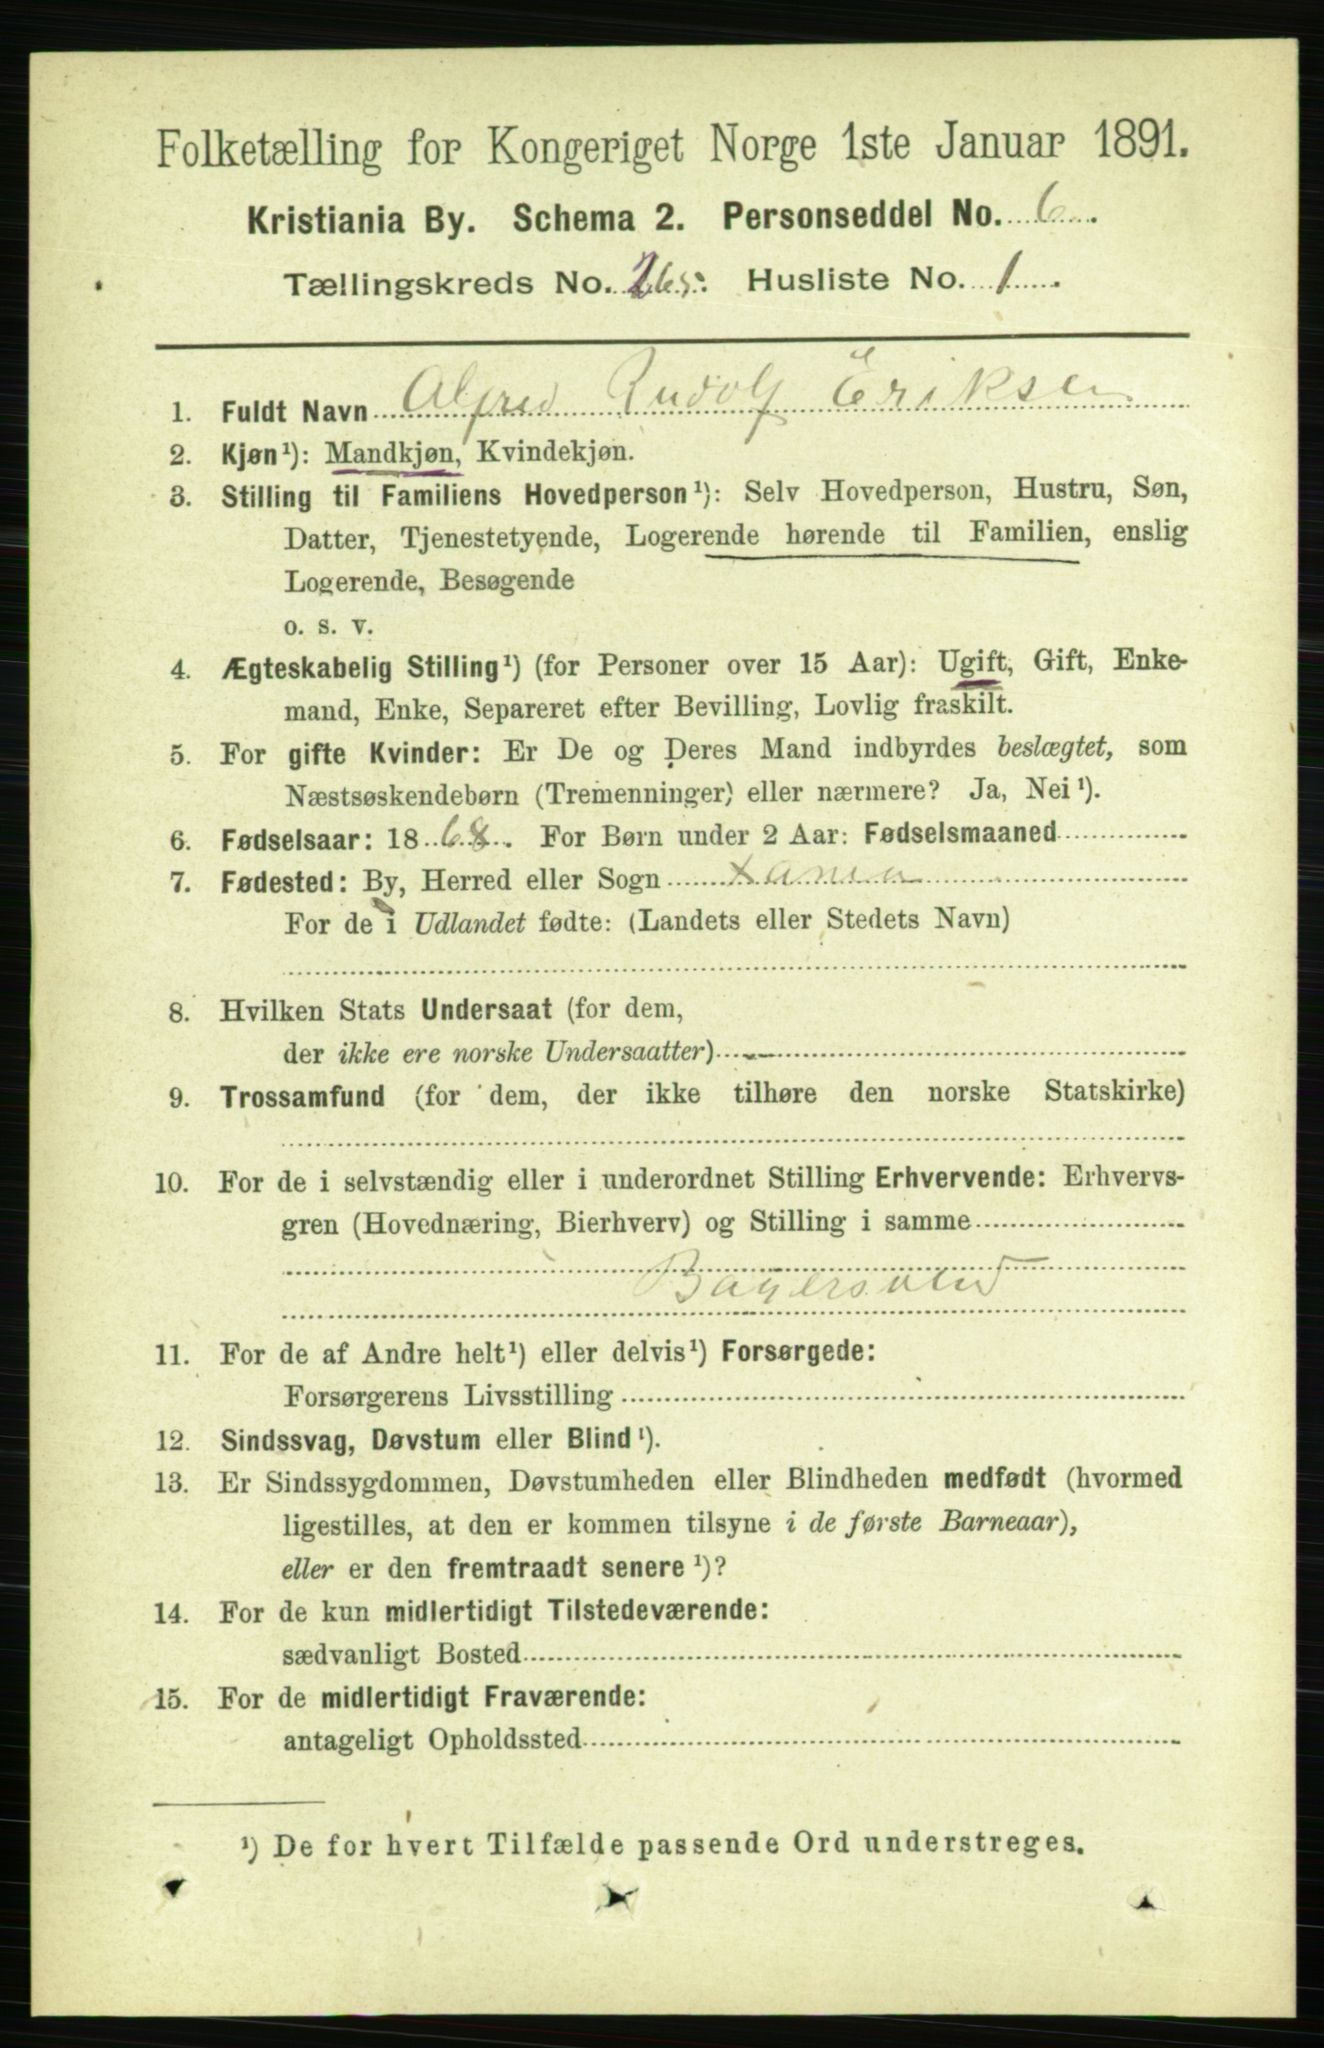 Folketælling for Kongeriget Norge 1ste Januar 1891.
Kristiania By. Schema 2. Personseddel No. 6.
Tællingskreds No. 265. Husliste No. 1.
1. Fuldt Navn Alfred Rudolf Eriksen
2. Kjøn¹): Mandkjøn, Kvindekjøn.
3. Stilling til Familiens Hovedperson¹): Selv Hovedperson, Hustru, Søn,
Datter, Tjenestetyende, Logerende hørende til Familien, enslig
Logerende, Besøgende
o. s. v.
4. Ægteskabelig Stilling¹) (for Personer over 15 Aar): Ugift, Gift, Enke-
mand, Enke, Separeret efter Bevilling, Lovlig fraskilt.
5. For gifte Kvinder: Er De og Deres Mand indbyrdes beslægtet, som
Næstsøskendebørn (Tremenninger) eller nærmere? Ja, Nei¹).
6. Fødselsaar: 1868. For Børn under 2 Aar: Fødselsmaaned
7. Fødested: By, Herred eller Sogn
For de i Udlandet fødte: (Landets eller Stedets Navn)
8. Hvilken Stats Undersaat (for dem,
der ikke ere norske Undersaatter)
9. Trossamfund (for dem, der ikke tilhøre den norske Statskirke)
10. For de i selvstændig eller i underordnet Stilling Erhvervende: Erhvervs-
gren (Hovednæring, Bierhverv) og Stilling i samme
Bagersvend
11. For de af Andre helt¹) eller delvis¹) Forsørgede:
Forsørgerens Livsstilling
12. Sindssvag, Døvstum eller Blind¹).
13. Er Sindssygdommen, Døvstumheden eller Blindheden medfødt (hvormed
ligestilles, at den er kommen tilsyne i de første Barneaar),
eller er den fremtraadt senere¹)?
14. For de kun midlertidigt Tilstedeværende:
sædvanligt Bosted
15. For de midlertidigt Fraværende:
antageligt Opholdssted
¹) De for hvert Tilfælde passende Ord understreges.